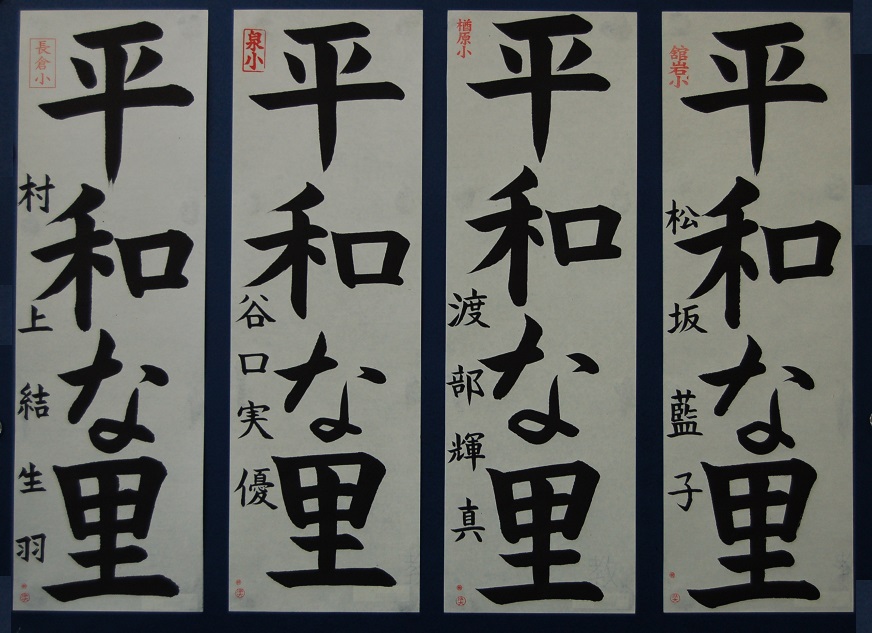 平和な里
長倉小
村上結生羽
平和な里
泉小
谷口実優
平和な里
楢原小
渡部輝真
平和な里
舘岩小
松坂藍子